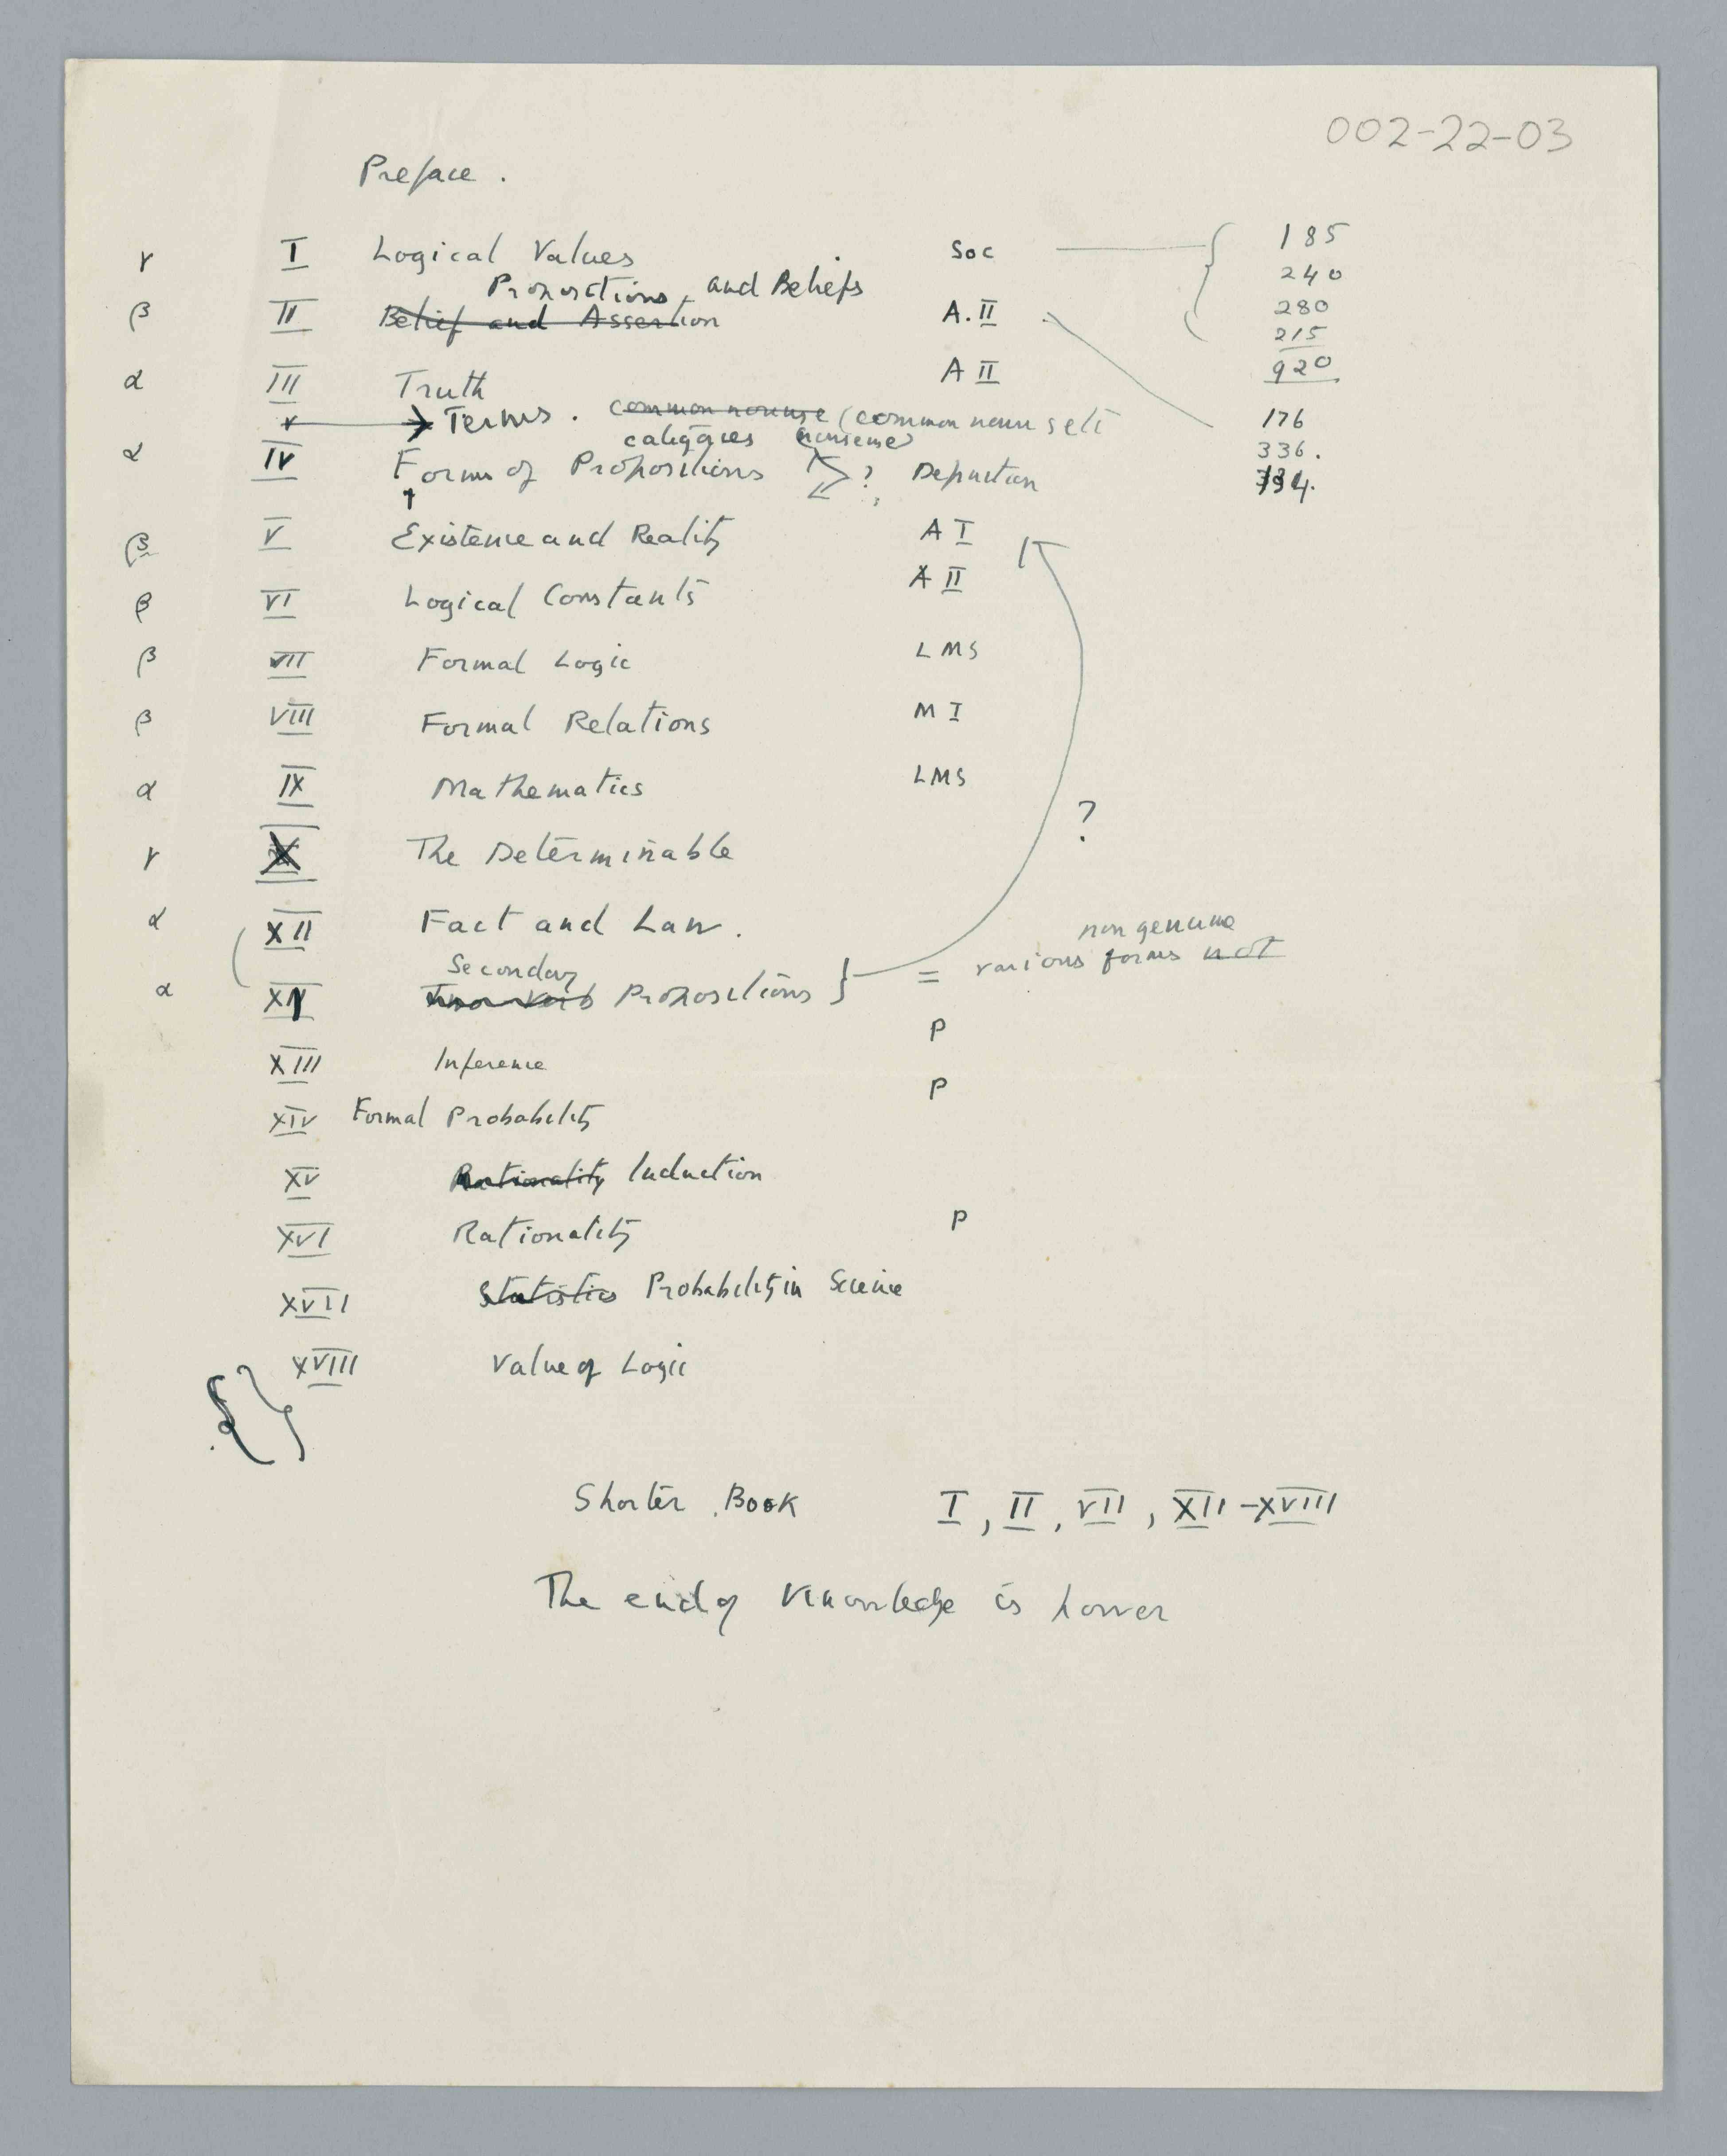 002-22-03
Preface.
γ I Logical Values Soc 185
240
Propositions and Beliefs
β II Belief and Assertion A.II 280
215
α III Truth A II 920
Terms. common nonsense (common noun self
categories nonsense) 176
α IV Forms of Propositions ? Definition 336.
134.
β V Existence and Reality A I
β VI Logical Constants A II
β VII Formal Logic LMS
β VIII Formal Relations M I
α IX Mathematics LMS
?
γ X The Determinable
α XII Fact and Law.
non genuine
Secondary = various forms not
α XI Propositions }
P
XIII Inference
P
XIV Formal Probability
XV Rationality Induction
XVI Rationality P
XVII Statistics Probability in Science
XVIII Value of Logic
Shorter Book I, II, VII, XII-XVIII
The end of Knowledge is power